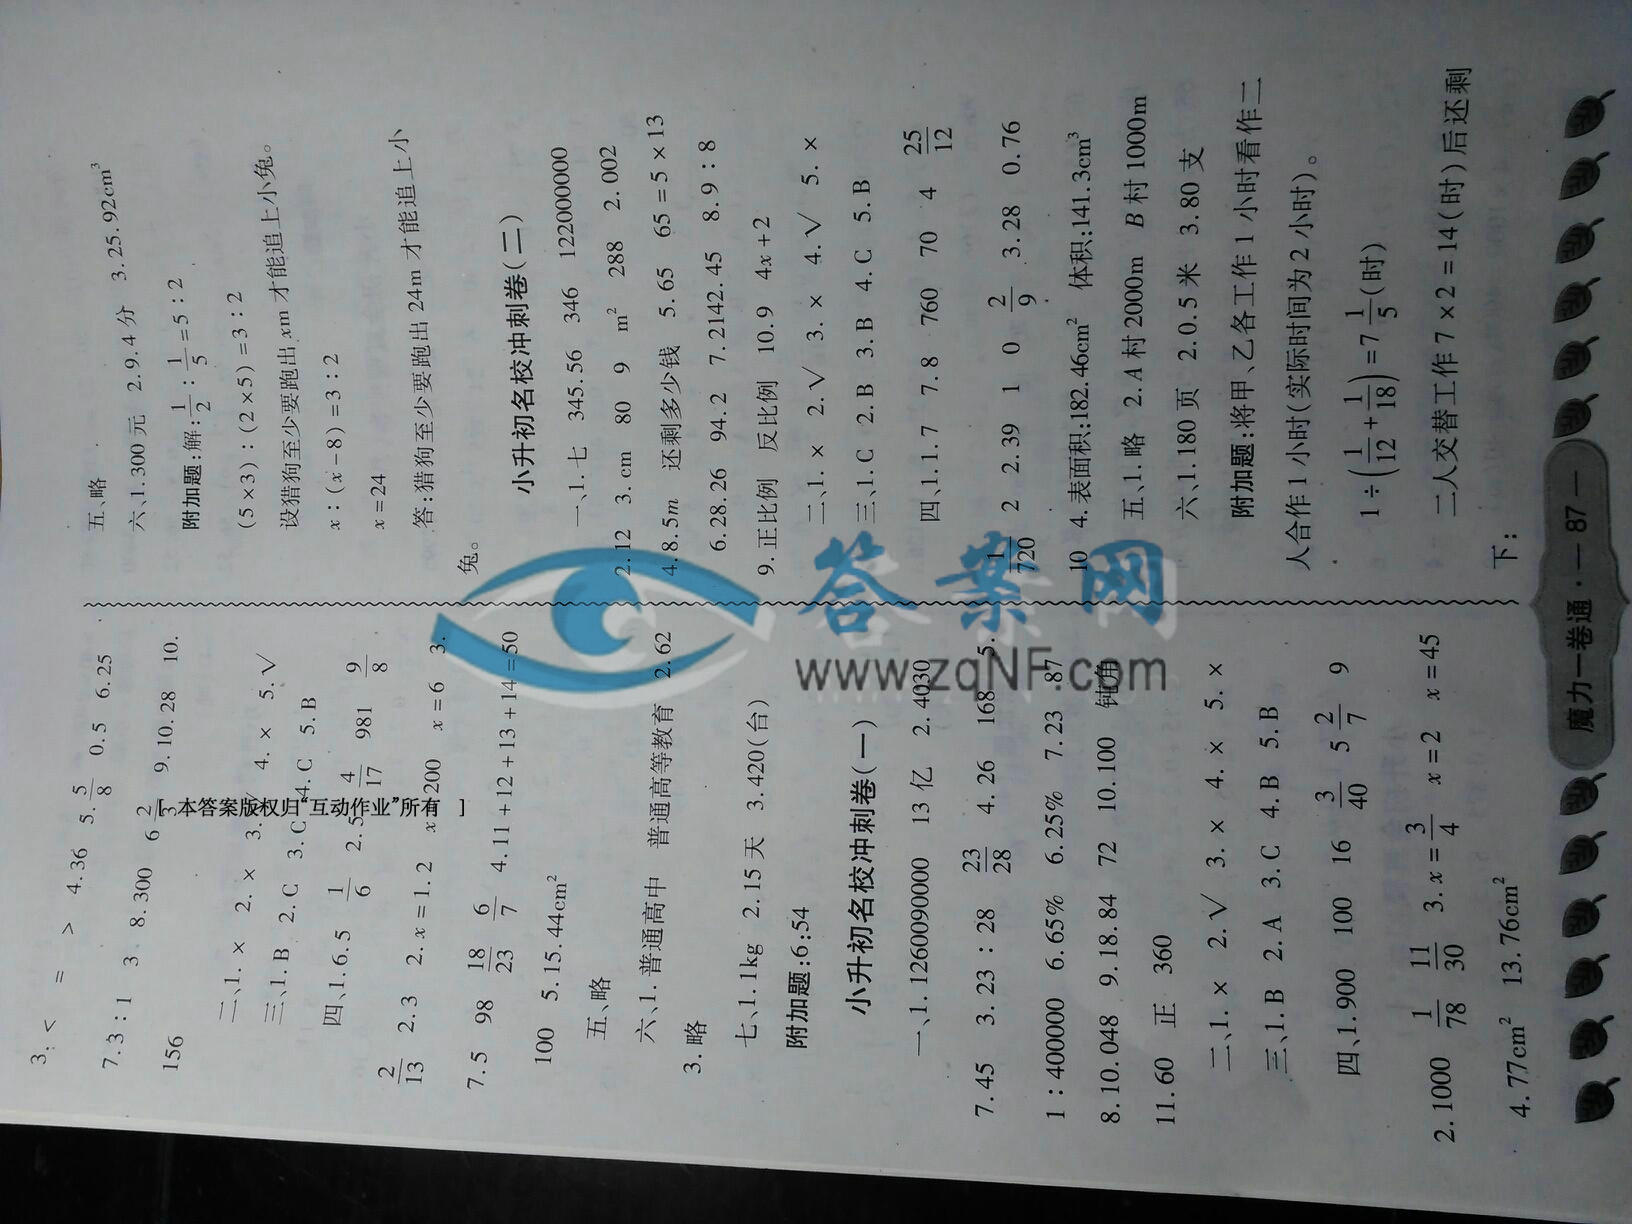 3. < = > 4.36 5. 5/8 0.5 6.25
7. 3:1 3 8.300 6 2/3 9.10.28 10.
156
二、1. × 2. × 3. 4. × 5. √
三、1. B 2. C 3. C 4. C 5. B
四、1. 6.5 1/6 2.5 4/17 981 9/8
2/13 2.3 2. x=1.2 x 200 x=6 3.
7.5 98 18/23 6/7 4.11+12+13+14=50
100 5.15.44cm²
五、略
六、1. 普通高中 普通高等教育 2.62
3. 略
七、1.1kg 2.15天 3.420(台)
附加题:6:54
小升初名校冲刺卷(一)
一、1. 1260090000 13亿 2.4030
7.45 3.23:28 23/28 4.26 168 5.
1:400000 6.65% 6.25% 7.23 87
8.10.048 9.18.84 72 10.100 钝角
11.60 正 360
二、1. × 2. √ 3. × 4. × 5. ×
三、1. B 2. A 3. C 4. B 5. B
四、1.900 100 16 3/40 5 2/7 9
2.1000 1/78 11/30 3. x=3/4 x=2 x=45
4.77cm² 13.76cm²
五、略
六、1.300元 2.9.4分 3.25.92cm³
附加题:解:1/2:1/5=5:2
(5×3):(2×5)=3:2
设猎狗至少要跑出xm才能追上小兔。
x:(x-8)=3:2
x=24
答:猎狗至少要跑出24m才能追上小
兔。
小升初名校冲刺卷(二)
一、1. 七 345.56 346 122000000
2.12 3. cm 80 9 m² 288 2.002
4.8.5m 还剩多少钱 5.65 65=5×13
6.28.26 94.2 7.2142.45 8.9:8
9. 正比例 反比例 10.9 4x+2
二、1. × 2. √ 3. × 4. √ 5. ×
三、1. C 2. B 3. B 4. C 5. B
四、1.1.7 7.8 760 70 4 25/12
1/720 2 2.39 1 0 2/9 3.28 0.76
10 4. 表面积:182.46cm² 体积:141.3cm³
五、1. 略 2. A村2000m B村1000m
六、1.180页 2.0.5米 3.80支
附加题:将甲、乙各工作1小时看作二
人合作1小时(实际时间为2小时)。
1÷(1/12+1/18)=7 1/5(时)
二人交替工作7×2=14(时)后还剩
下:
魔力一卷通·— 87 —
答案网
www.zqNF.com
[ 本答案版权归“互动作业”所有 ]